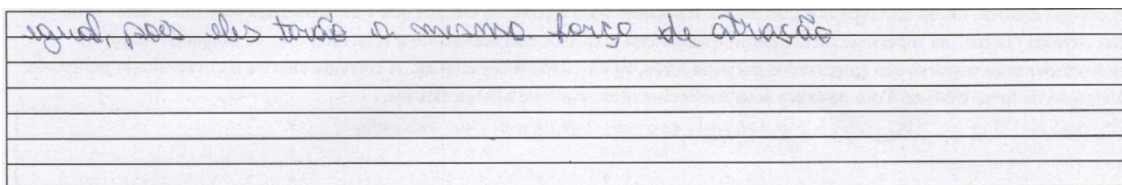 igual, pois eles terão a mesma força de atração